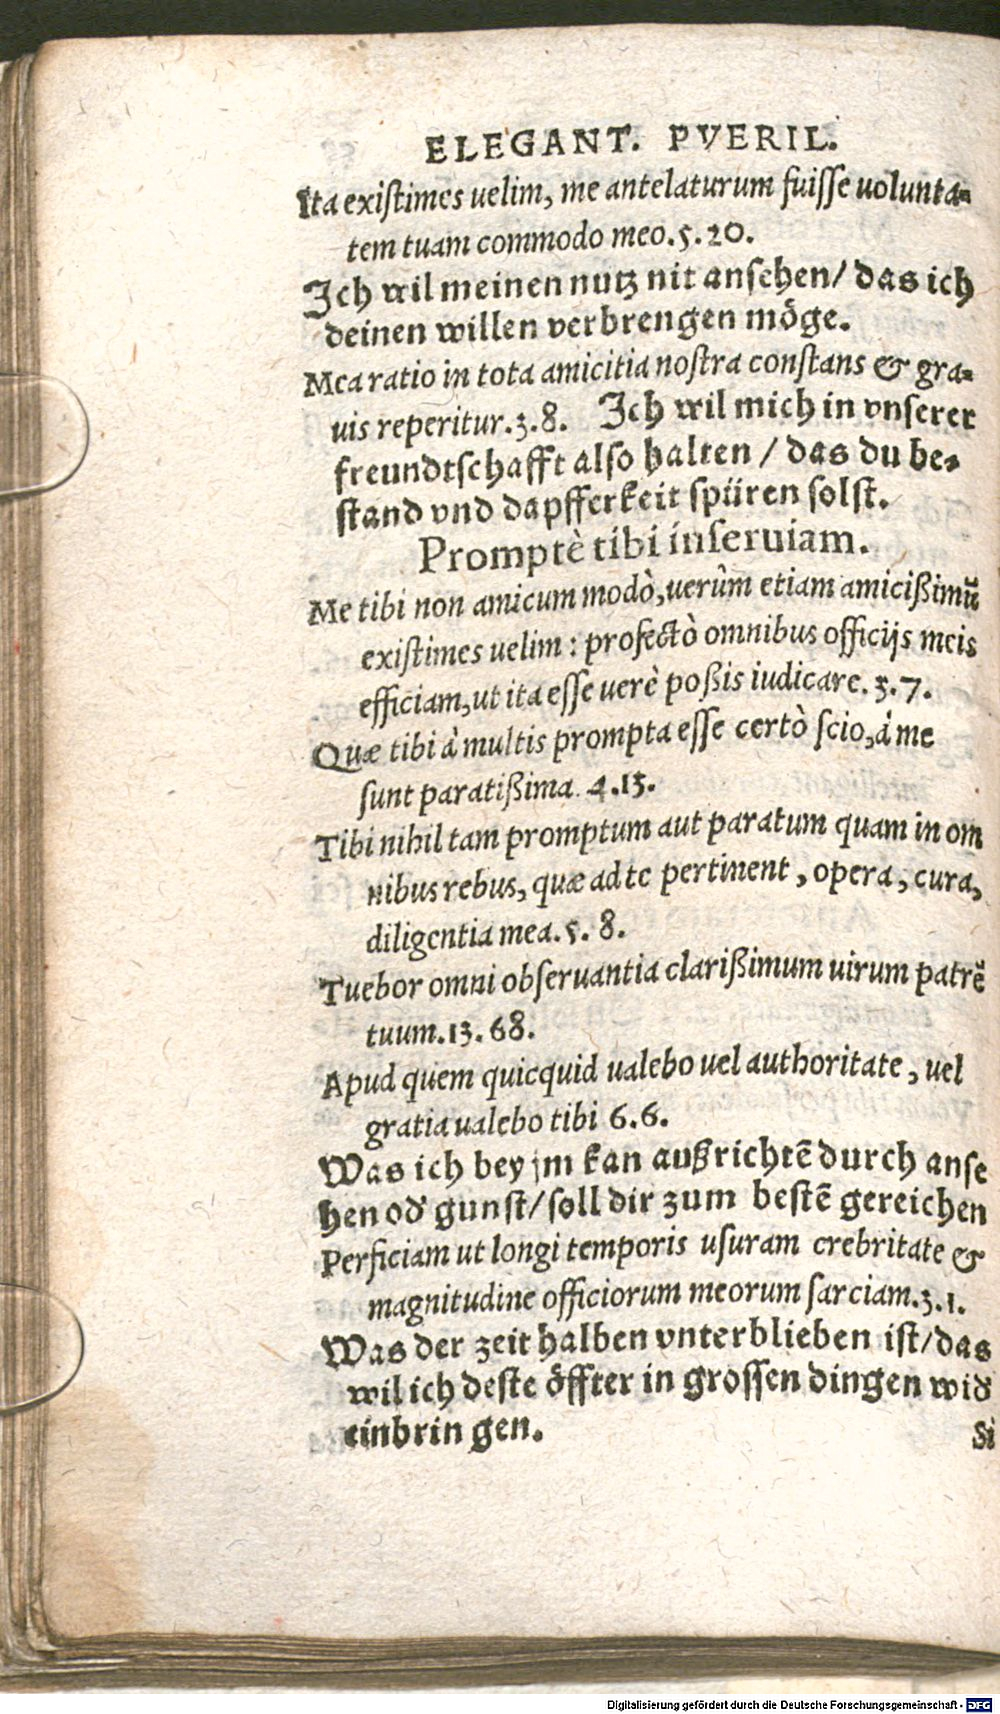 ELEGANT. PVERIL.
Ita existimes uelim, me antelaturum fuisse uolunta-
tem tuam commodo meo. 5. 20.
Ich wil meinen nutz nit ansehen/ das ich
deinen willen verbrengen möge.
Mea ratio in tota amicitia nostra constans & gra-
uis reperitur. 3. 8. Ich wil mich in vnserer
freundtschafft also halten / das du be-
stand vnd dapfferkeit spüren solst.
Promptè tibi inseruiam.
Me tibi non amicum modò, uerûm etiam amicißimũ
existimes uelim : profectò omnibus officijs meis
efficiam, ut ita esse uerè poßis iudicare. 3. 7.
Quæ tibi à multis prompta esse certò scio, à me
sunt paratißima. 4. 13.
Tibi nihil tam promptum aut paratum quam in om
nibus rebus, quæ ad te pertinent, opera, cura,
diligentia mea. 5. 8.
Tuebor omni obseruantia clarißimum uirum patrẽ
tuum. 13. 68.
Apud quem quicquid ualebo uel authoritate, uel
gratia ualebo tibi 6. 6.
Was ich bey jm kan außrichtẽ durch anse
hen od' gunst/ soll dir zum bestẽ gereichen
Perficiam ut longi temporis usuram crebritate &
magnitudine officiorum meorum sarciam. 3. 1.
Was der zeit halben vnterblieben ist/ das
wil ich deste öffter in grossen dingen wid'
einbrin gen.
Si
Digitalisierung gefördert durch die Deutsche Forschungsgemeinschaft - DFG